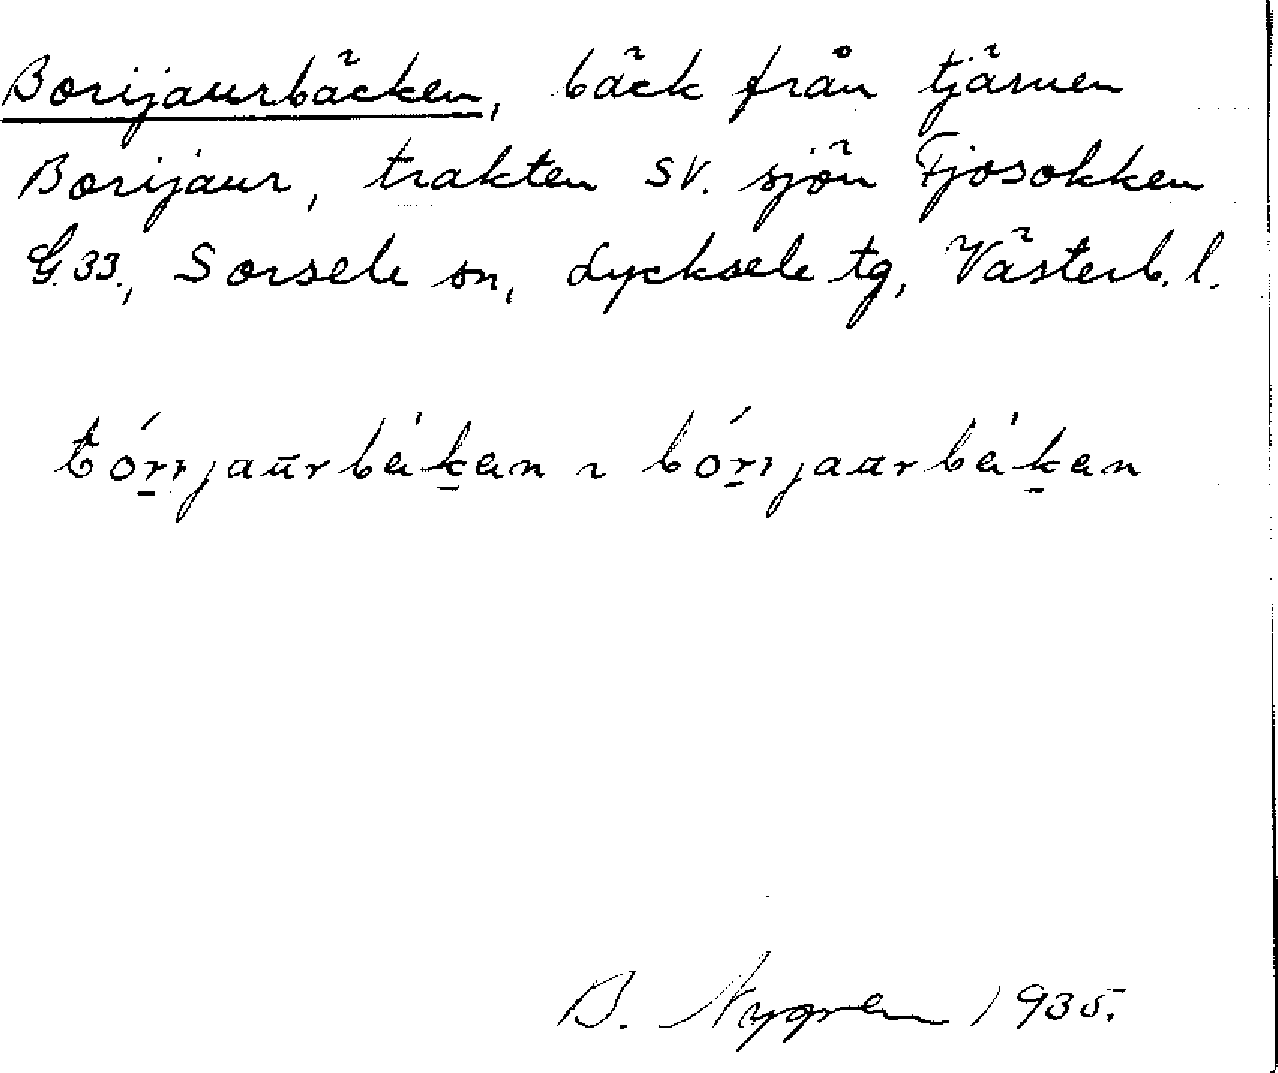 Borijaurbäcken, bäck från tjärnen
Borijaur, trakten SV. sjön Fjosokken
G.33., Sorsele sn, Lycksele tg, Västerb. l.
B. Nygren 1935.